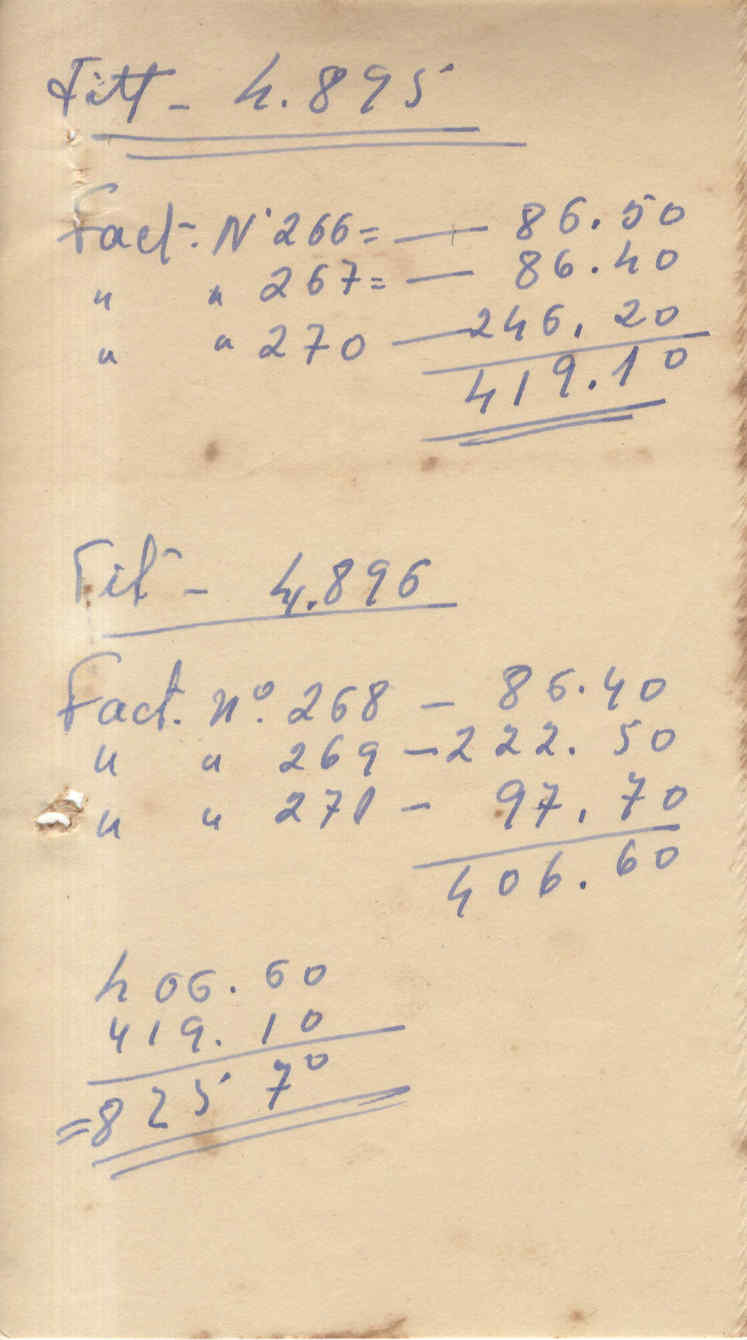 Fitt - 4.895
Fact. Nº 266 = — 86.50
" " 267 = — 86.40
" " 270 — 246.20
419.10
Fit - 4.896
Fact. nº. 268 - 86.40
" " 269 - 222.50
" " 271 - 97.70
406.60
406.60
419.10
= 825 70